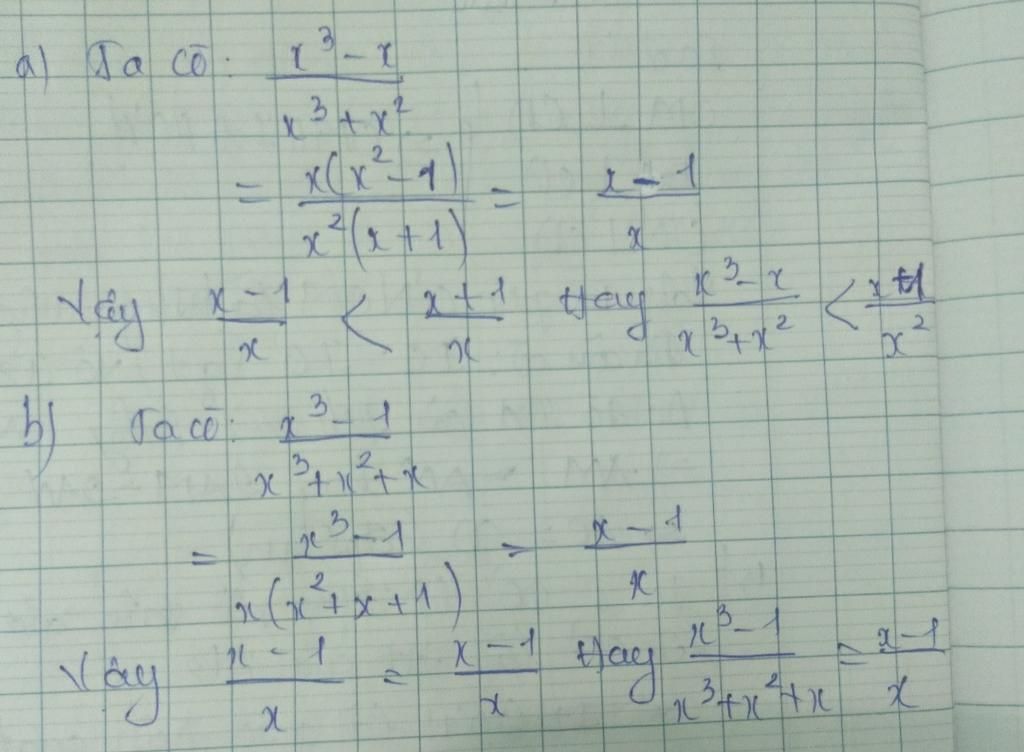 a) Ta có: (x³ - x)/(x³ + x²)
= x(x² - 1)/(x²(x + 1)) = (x - 1)/x
Vậy (x - 1)/x < (x + 1)/x Hay (x³ - x)/(x³ + x²) < (x + 1)/x²
b) Ta có: (x³ - 1)/(x³ + x² + x)
= (x³ - 1)/(x(x² + x + 1)) = (x - 1)/x
Vậy (x - 1)/x = (x - 1)/x Hay (x³ - 1)/(x³ + x² + x) = (x - 1)/x